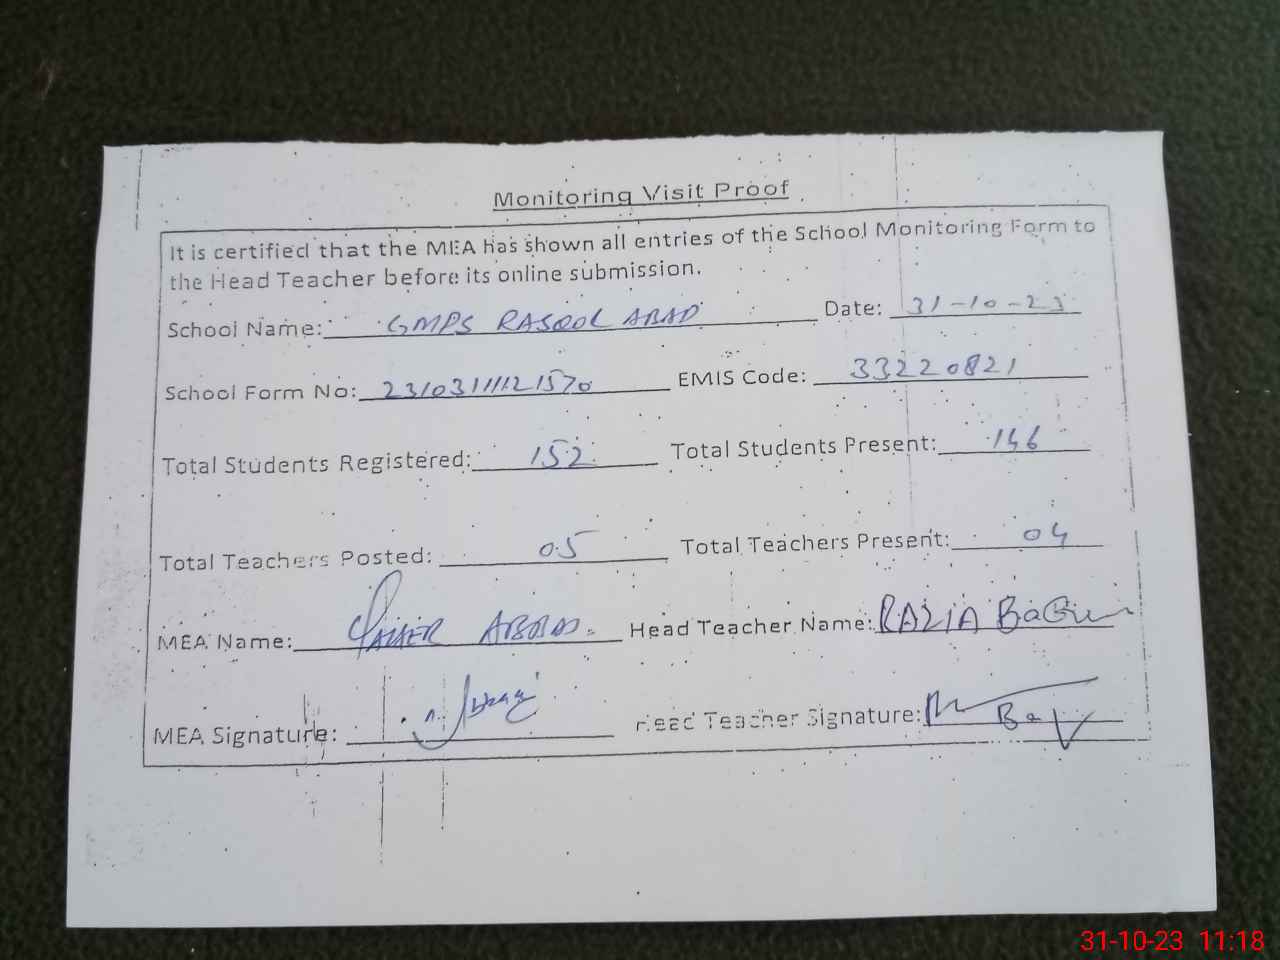 Monitoring Visit Proof
It is certified that the MEA has shown all entries of the School Monitoring Form to
the Head Teacher before its online submission.
School Name: GMPS RASOOL ABAD Date: 31-10-23
School Form No: 23103111121570 EMIS Code: 33220821
Total Students Registered: 152 Total Students Present: 146
Total Teachers Posted: 05 Total Teachers Present: 04
MEA Name: ABBAS. Head Teacher Name: RAZIA
MEA Signature: Head Teacher Signature:
31-10-23 11:18